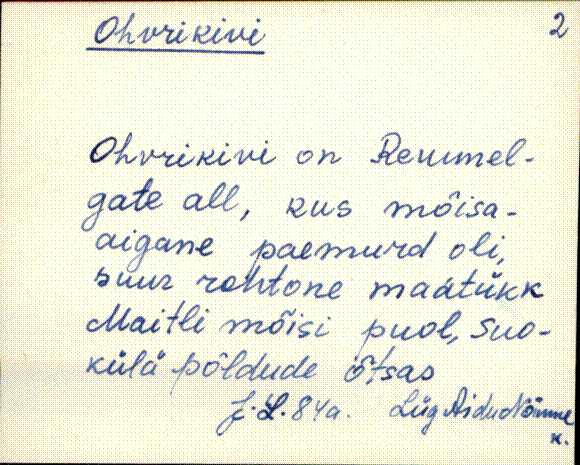 Ohvrikivi 2
Ohvrikivi on Remmel-
gate all, kus mõisa-
aigane paemurd oli,
suur rohtone maatükk
Maitli mõisi puol, Suo-
külä põldude õtsas
J. L. 84a. Lüg Aidu Nõmme
k.